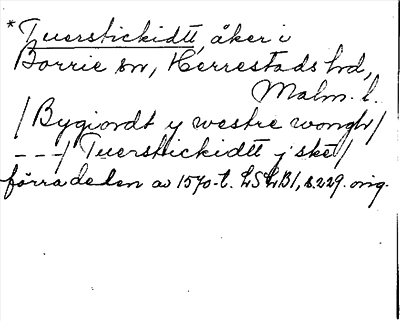 *Tuerstickidtt, åker i
Borrie sn, Herrestads hd,
Malm. l.
/Bygiordt y westre wongh/
---/Tuerstickidtt j sket/
förra delen av 1570-t. LSLB1, s. 229. orig.